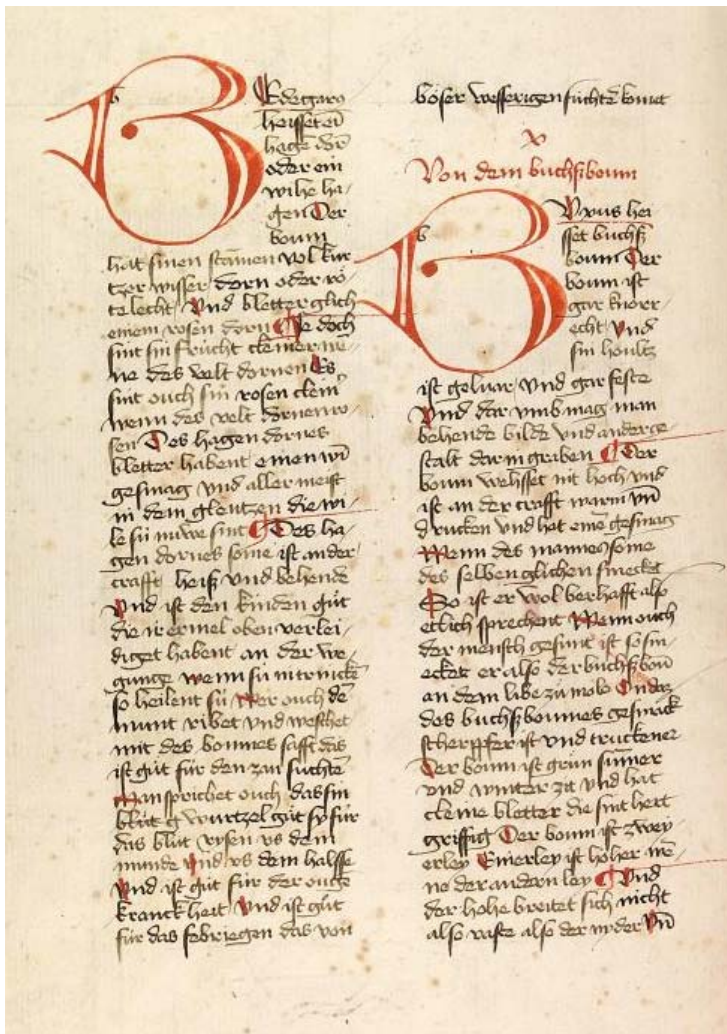 B Bdegaro
heisset ein
hagen dorn
oder ein
wilhe ha/
gen Der
boum
hat sinen stamen vol kur
tzer wisser dorn oder rö/
telecht Vnd bletter glich
einem rosen dorn Je doch
sint sin frücht cleiner we/
ne des velt dornen Es
sint ouch sin rosen clein
wenn des velt dornen ro/
sen Des hagen dornes
bletter habent einen win
gesmag vnd aller meist
in dem glentzen die wi/
le sü nuwe sint Des ha/
gen dornes some ist ander
crafft heis vnd behende
Vnd ist den kinden güt
die ir ermel oben verlei/
diget habent an der we/
gunge wenn sü in trincken
so heilent sü Wer ouch den
munt ribet vnd weschet
mit des boumes safft das
ist güt für den zan suchten
Man sprichet ouch das sin
blüt wurtzel güt sy für
das blüt rysen vs dem
munde Vnd vs dem halsse
Vnd ist güt für der ougen
kranckheit Vnd ist güt
für das febriegen das von
böser wesserigen füchte komet
x
Von dem buchsboum
B Bxus hei
sset buchs
boum Der
boum ist
gar knorr
echt Vnd
sin houltz
ist geluar vnd gar feste
Vnd dar vmb mag man
behende bilde vnd ander ge/
stalt dar in graben Der
boum wehsset nit hoch vnd
ist an der crafft warm vnd
drucken vnd hat eine gesmag
Wenn des mannes some
des selben glichen smecket
So ist er wol berhafft also
ettlich sprechent Wenn ouch
der mensch gesunt ist so sm/
ecket er also der buchsboum
an dem libe zu mole On das
des buchsboumes gesmack
scherpffer ist vnd truckener
Der boum ist grün sumer
vnd winter zit vnd hat
cleine bletter die sint hert
griffig Der boum ist zwey
erley Einerley ist hoher we/
ne der andern ley Vnd
der hohe breitet sich nicht
also vaste also der nyder Vnd